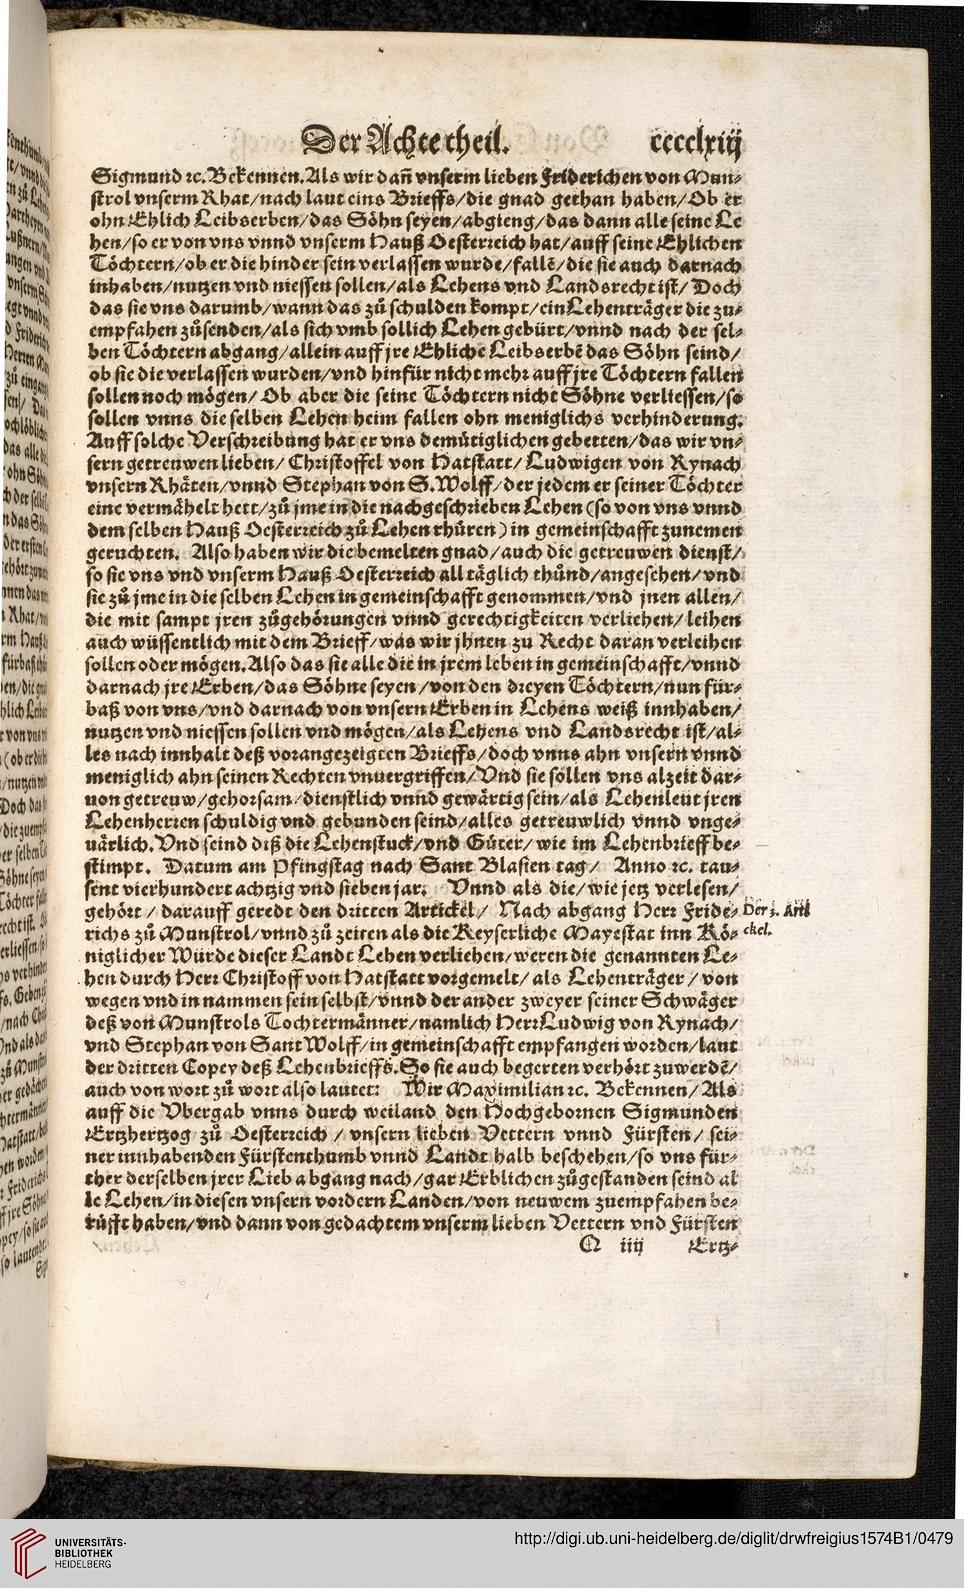 Der Achte theil. cccclxiij
Sigmund ꝛc. Bekennen. Als wir dañ vnserm lieben Friderichen von Mun⸗
strol vnserm Rhat/nach laut eins Brieffs/die gnad gethan haben/Ob er
ohn Ehlich Leibserben/das Söhn seyen/abgieng/das dann alle seine Le
hen/so er von vns vnnd vnserm Hauß Oesterreich hat/auff seine Ehlichen
Töchtern/ob er die hinder sein verlassen wurde/fallē/die sie auch darnach
inhaben/nutzen vnd niessen sollen/als Lehens vnd Landsrecht ist/ Doch
das sie vns darumb/wann das zů schulden kompt/ein Lehenträger die zu⸗
empfahen zůsenden/als sich vmb sollich Lehen gebürt/vnnd nach der sel⸗
ben Töchtern abgang/allein auff jre Ehliche Leibserbē das Söhn seind/
ob sie die verlassen wurden/vnd hinfür nicht mehr auff jre Töchtern fallen
sollen noch mögen/ Ob aber die seine Töchtern nicht Söhne verliessen/so
sollen vnns die selben Lehen heim fallen ohn meniglichs verhinderung.
Auff solche Verschreibung hat er vns demütiglichen gebetten/das wir vn⸗
sern getreuwen lieben/ Christoffel von Hatstatt/ Ludwigen von Rynach
vnsern Rhäten/vnnd Stephan von S. Wolff/der jedem er seiner Töchter
eine vermähelt hett/zů jme in die nachgeschrieben Lehen (so von vns vnnd
dem selben Hauß Oesterreich zů Lehen rhüren) in gemeinschafft zunemen
geruchten. Also haben wir die bemelten gnad/auch die getreuwen dienst/
so sie vns vnd vnserm Hauß Oesterreich all täglich thůnd/angesehen/vnd
sie zů jme in die selben Lehen in gemeinschafft genommen/vnd jnen allen/
die mit sampt jren zůgehörungen vnnd gerechtigkeiten verliehen/leihen
auch wüssentlich mit dem Brieff/was wir jhnen zu Recht daran verleihen
sollen oder mögen. Also das sie alle die in jrem leben in gemeinschafft/vnnd
darnach jre Erben/das Söhne seyen/von den dreyen Töchtern/nun für⸗
baß von vns/vnd darnach von vnsern Erben in Lehens weiß innhaben/
nutzen vnd niessen sollen vnd mögen/als Lehens vnd Landsrecht ist/al⸗
les nach innhalt deß vorangezeigten Brieffs/doch vnns ahn vnsern vnnd
meniglich ahn seinen Rechten vnuergriffen/Vnd sie söllen vns alzeit dar⸗
uon getreuw/gehorsam/dienstlich vnnd gewärtig sein/als Lehenleut jren
Lehenherren schuldig vnd gebunden seind/alles getreuwlich vnnd vnge⸗
uärlich. Vnd seind diß die Lehenstuck/vnd Güter/ wie im Lehenbrieff be⸗
stimpt. Datum am Pfingstag nach Sant Blasien tag/ Anno ꝛc. tau⸗
sent vierhundert achtzig vnd sieben jar. Vnnd als die/wie jetz verlesen/
gehört/ darauff geredt den dritten Artickel/ Nach abgang Herr Fride⸗
richs zů Munstrol/vnnd zů zeiten als die Keyserliche Mayestat inn Kö⸗
niglicher Würde dieser Landt Lehen verliehen/weren die genannten Le⸗
hen durch Herr Christoff von Hatstatt vorgemelt/ als Lehenträger/ von
wegen vnd in nammen sein selbst/vnnd der ander zweyer seiner Schwäger
deß von Munstrols Tochtermänner/namlich Herr Ludwig von Rynach/
vnd Stephan von Sant Wolff/in gemeinschafft empfangen worden/laut
der dritten Copey deß Lehenbrieffs. So sie auch begerten verhört zuwerdē/
auch von wort zů wort also lautet: Wir Maximilian ꝛc. Bekennen/Als
auff die Vbergab vnns durch weiland den Hochgebornen Sigmunden
Ertzhertzog zů Oesterreich/ vnsern lieben Vettern vnnd Fürsten/ sei⸗
ner innhabenden Fürstenthumb vnnd Landt halb beschehen/so vns für⸗
ther derselben jrer Lieb abgang nach/gar Erblichen zůgestanden seind al
le Lehen/in diesen vnsern vordern Landen/von neuwem zuempfahen be⸗
rüfft haben/vnd dann von gedachtem vnserm lieben Vettern vnd Fürsten
Q iiij Ertz⸗
Der 3. Arti
ckel.
UNIVERSITÄTS-
BIBLIOTHEK
HEIDELBERG
http://digi.ub.uni-heidelberg.de/diglit/drwfreigius1574B1/0479